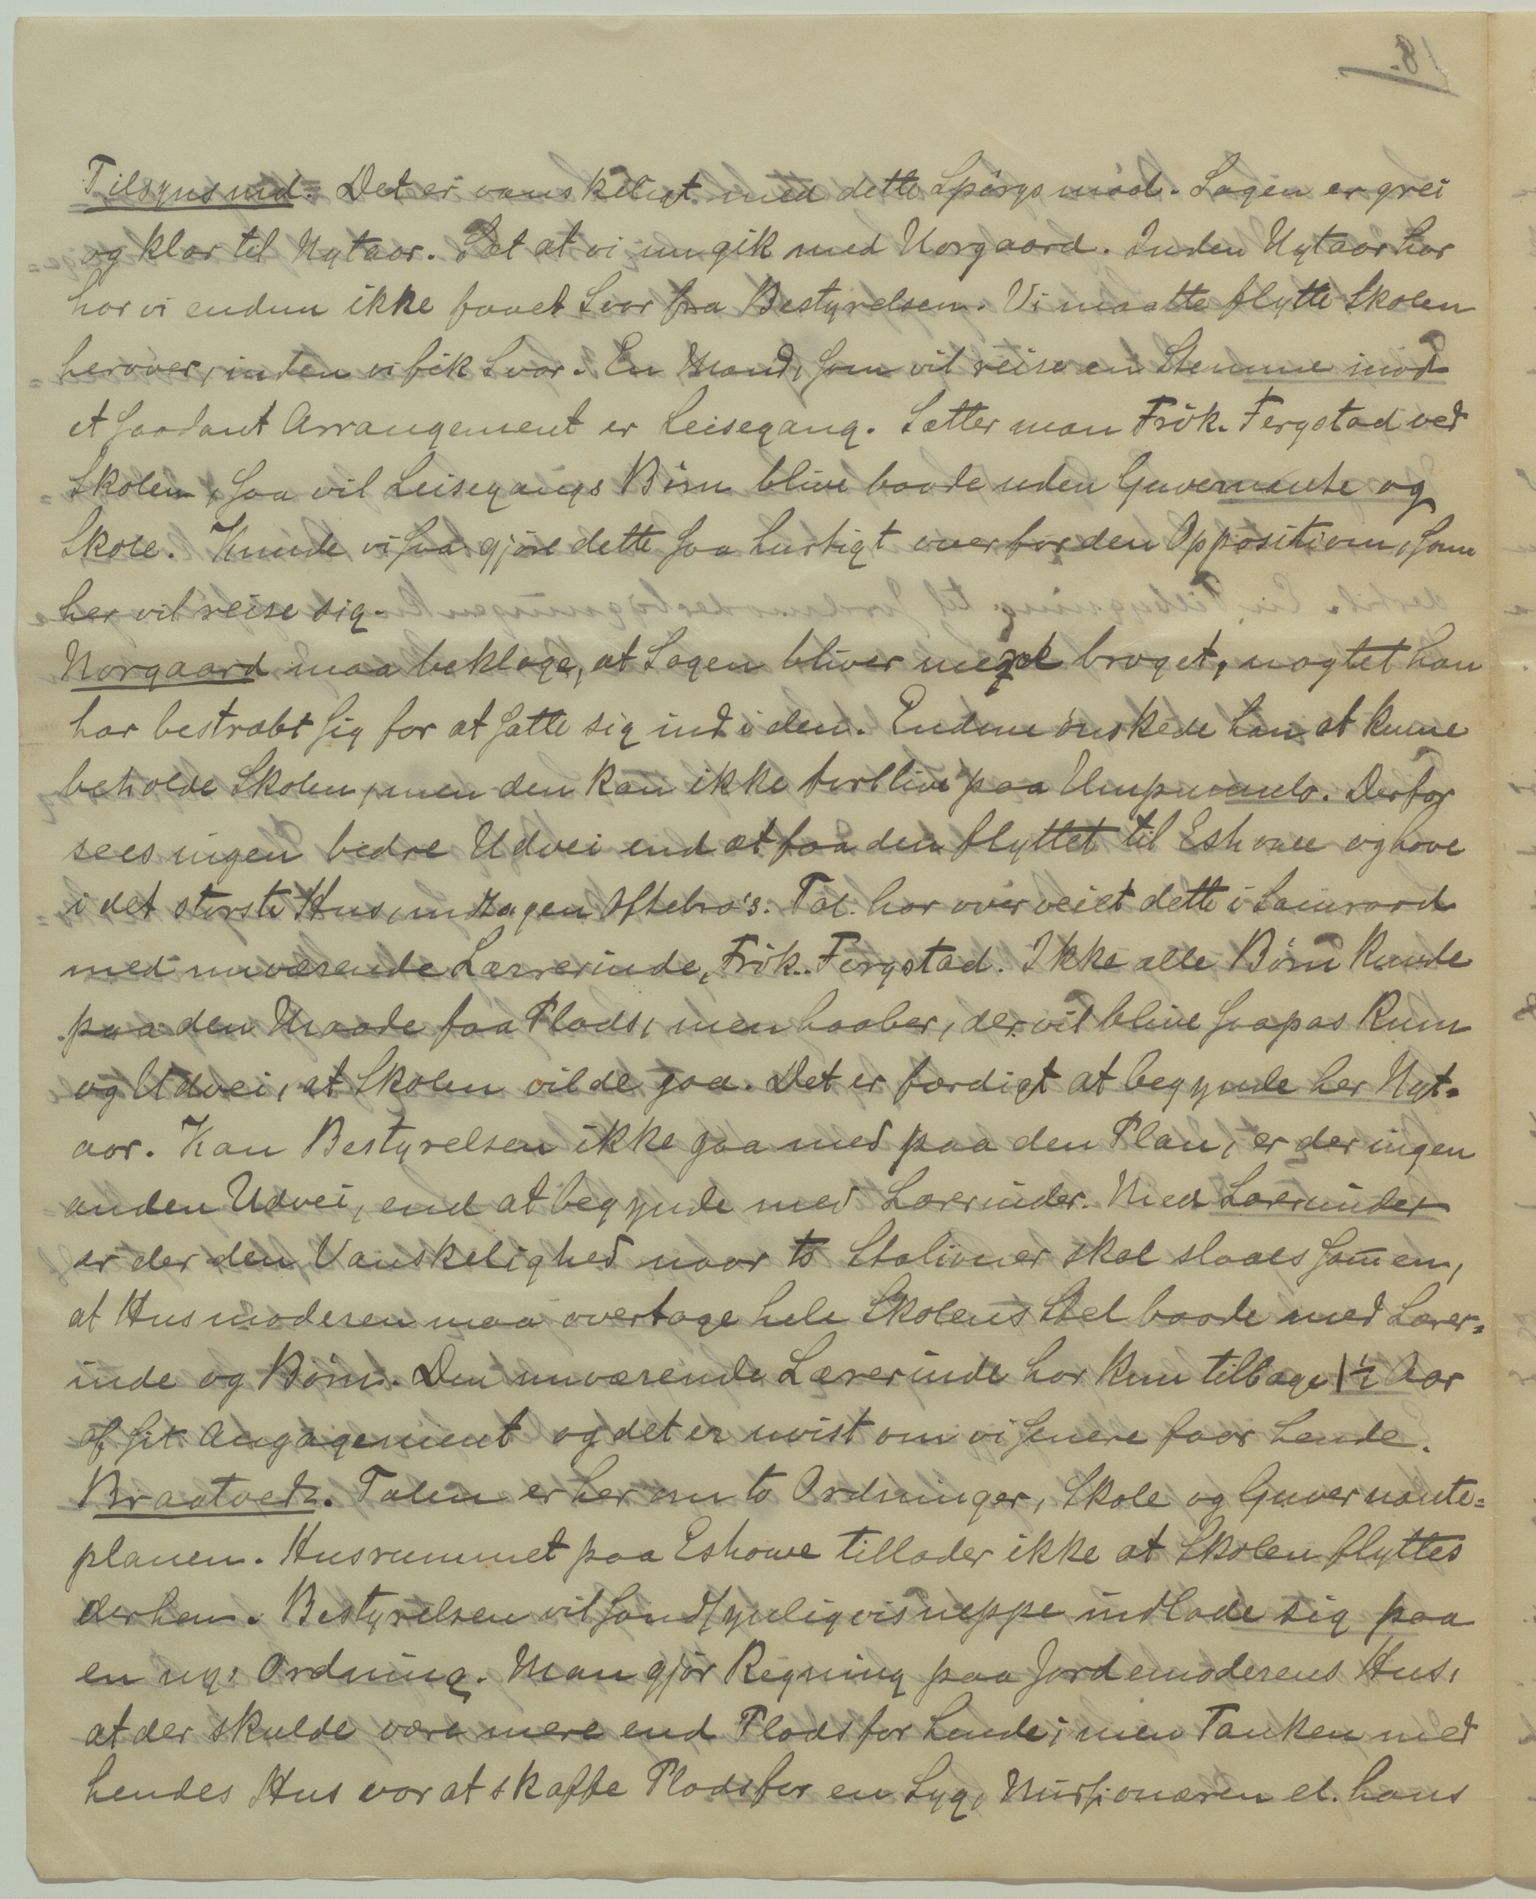 Tilsynsmd. Det er vanskeligt med dette Spörgsmaal. Sagen er grei
og klar til Nytaar. Sæt at vi nu gik med Norgaard. Inden Nytaar har
har vi endnu ikke faaet Svar fra Bestyrelsen. Vi maatte flytte Skolen
herover, inden vi fik Svar. En Mand, som vil reise en Stemme mod
et saadant Arrangement er Leisegang. Sætter man Frök. Fergstad ved
Skolen, saa vil Leisegangs Börn blive baade uden Guvernante og
Skole. Kunde vi saa gjöre dette saa hurtigt overfor den Opposition, som
her vil reise sig.
Norgaard maa beklage, at Sagen bliver meget broget, uagtet han
har bestræbt sig for at sætte sig ind i den. Endnu önskede han at kunne
beholde Skolen, men den kan ikke forblive paa Umpumulo. Derfor
sees ingen bedre Udvei end at faa den flyttet til Eshowe og have
i det störste Hus, undtagen Oftebro's. Tal. har overveiet dette i Samraad
med nuværende Lærerinde, Frök. Fergstad. Ikke alle Börn kunde
paa den Maade faa Plads, men haaber, der vil blive saapas Rum
og Udvei, at Skolen vilde gaa. Det er færdigt at begynde her Nyt=
aar. Kan Bestyrelsen ikke gaa med paa den Plan, er der ingen
anden Udvei, end at begynde med Lærerinder. Med Lærerinder
er der den Vanskelighed naar to Stationer skal slaaes sam̄en,
at Husmoderen maa overtage hele Skolens Stel baade med Lærer=
inde og Börn. Den nuværende Lærerinde har kun tilbage 1½ Aar
af sit Angagement og det er uvist om vi senere faar hende.
Braatvedt. Talen er her om to Ordninger, Skole og Guvernante=
planen. Husrummet paa Eshowe tillader ikke at Skolen flyttes
derhen. Bestyrelsen vil sandsynligvis neppe indlade sig paa
en ny Ordning. Man gjör Regning paa Jordemoderens Hus,
at der skulde være mere end Plads for hende; men Tanken med
hendes Hus var at skaffe Plads for en syg Missionæren el. hans